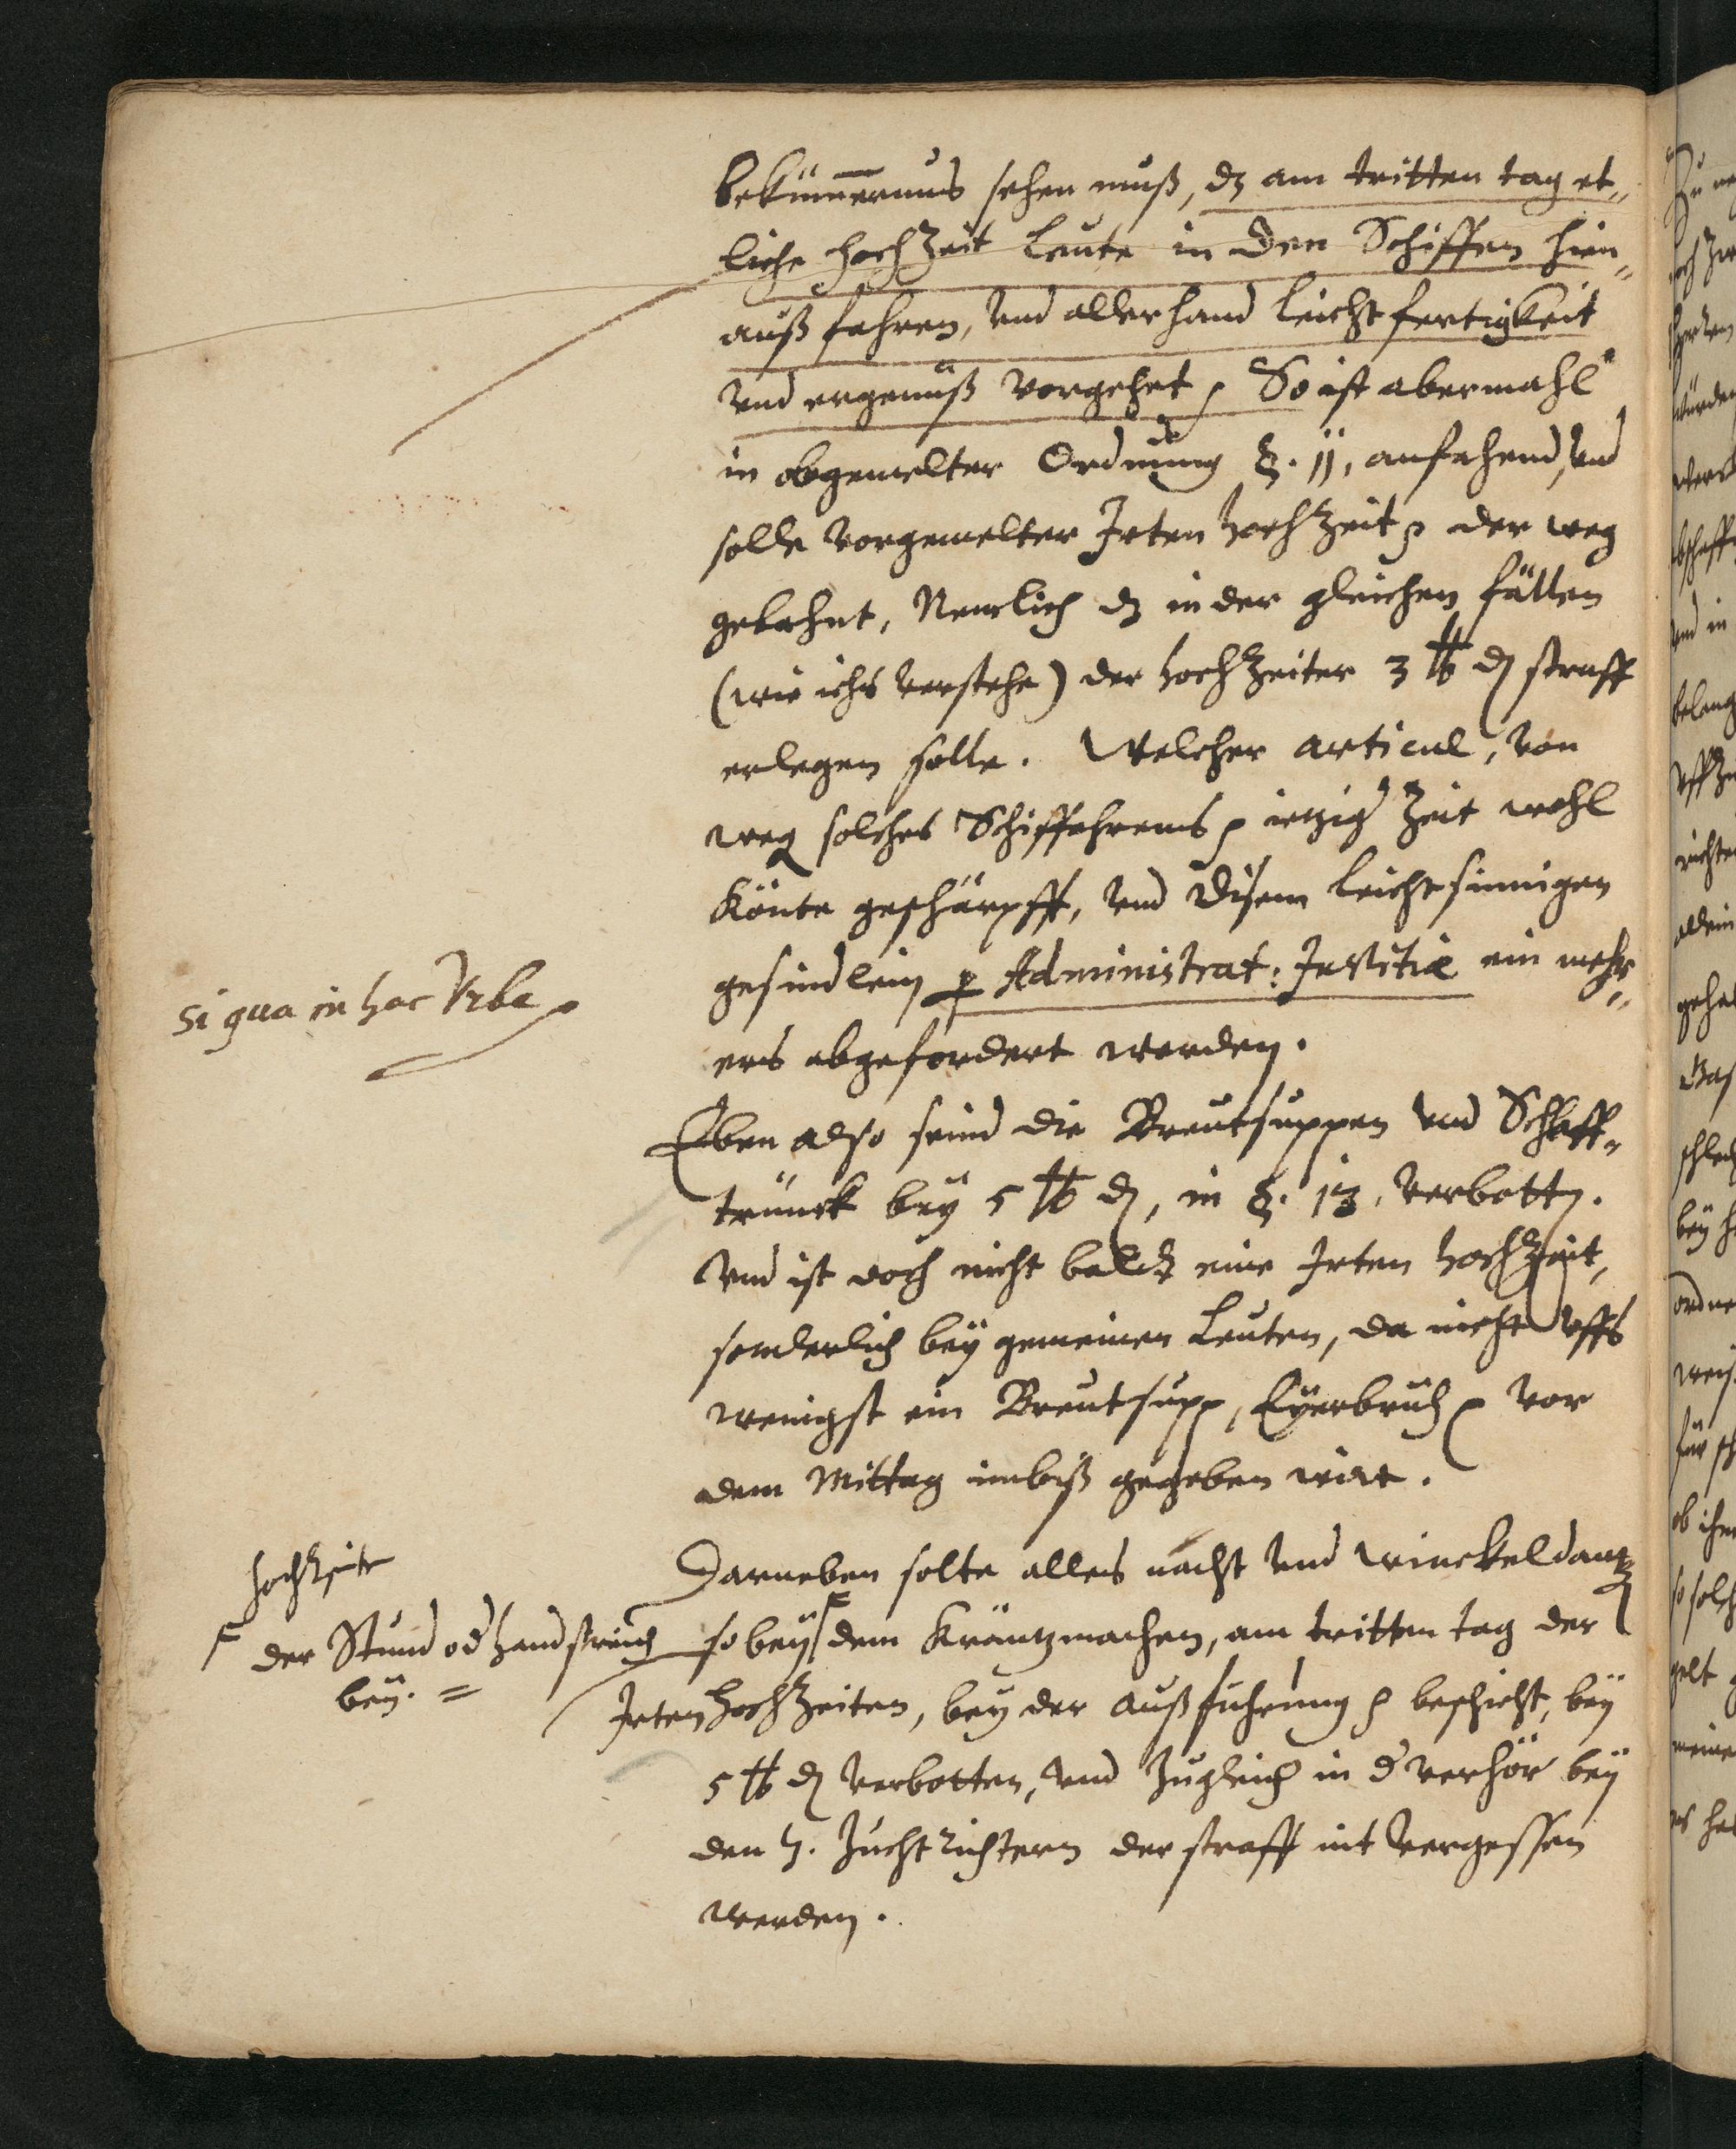 bekümernus sehen muß, dz am tritten tag et„
liche hochzeit leute in den Schiffen hin„
auß fahren, vnd allerhand leichtfertigkeit
vnd ergernuß vorgehet, So ist abermahl
in obgemelter Ordnung §. 11, anfahend, vnd
solle vorgemelter Jrten hochzeit der weg
gebahnt, Nemlich dz in der gleichen fällen
(wie ichs verstehe) der hochzeiter 3 ℔ ₰ straff
erlegen solle. Welcher articul, von
weg solches Schiffahrens ietzig Zeit wohl
könte geschärpfft, vnd disem leichtsinnigen
gesindlein p Administrat: Justitiæ ein mehr„
si qua in hac Vrbe
ers abgefordert werden.
Eben also seind die Breutsuppen vnd Schlaff„
trünck bey 5 ℔ ₰, in §. 13. verbotten.
Vnd ist doch nicht bald eine Jrten hochzeit,
sonderlich bey gemeinen Leuten, da nicht vffs
wenigst ein Breutsupp, Eyerbrüh vor
dem Mittag imbiß gegeben wirt.
Darneben solte alles nacht vnd winckeldantz
hochzeite
der Stund od handstreich
bey. =
so bey dem Kräntzmachen, am tritten tag der
Jrten hochzeiten, bey der außführung beschicht, bey
5 ℔ ₰ verbotten, vnd zugleich in d verhör bey
den H. Zuchtrichtern der straff nit vergessen
werden.